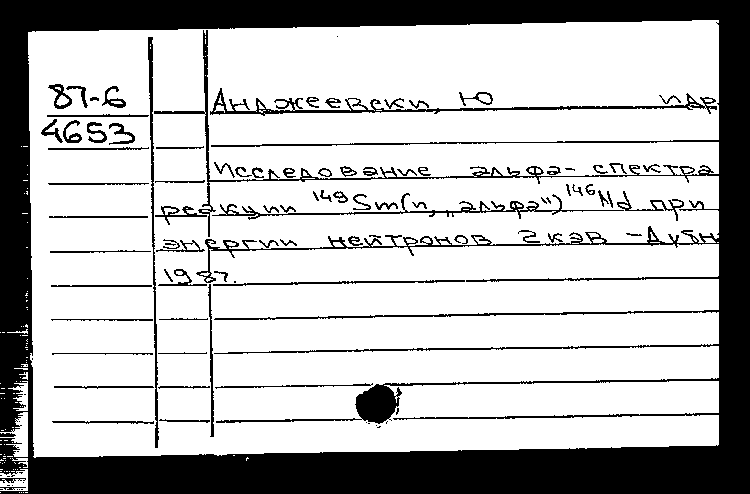 87-6
4653
Анджеевски, Ю идр
Исследование альфа-спектра
реакции ¹⁴⁹Sm(n, „альфа“)¹⁴⁶Nd при
энергии нейтронов 2 кэв - Дубн
1987.